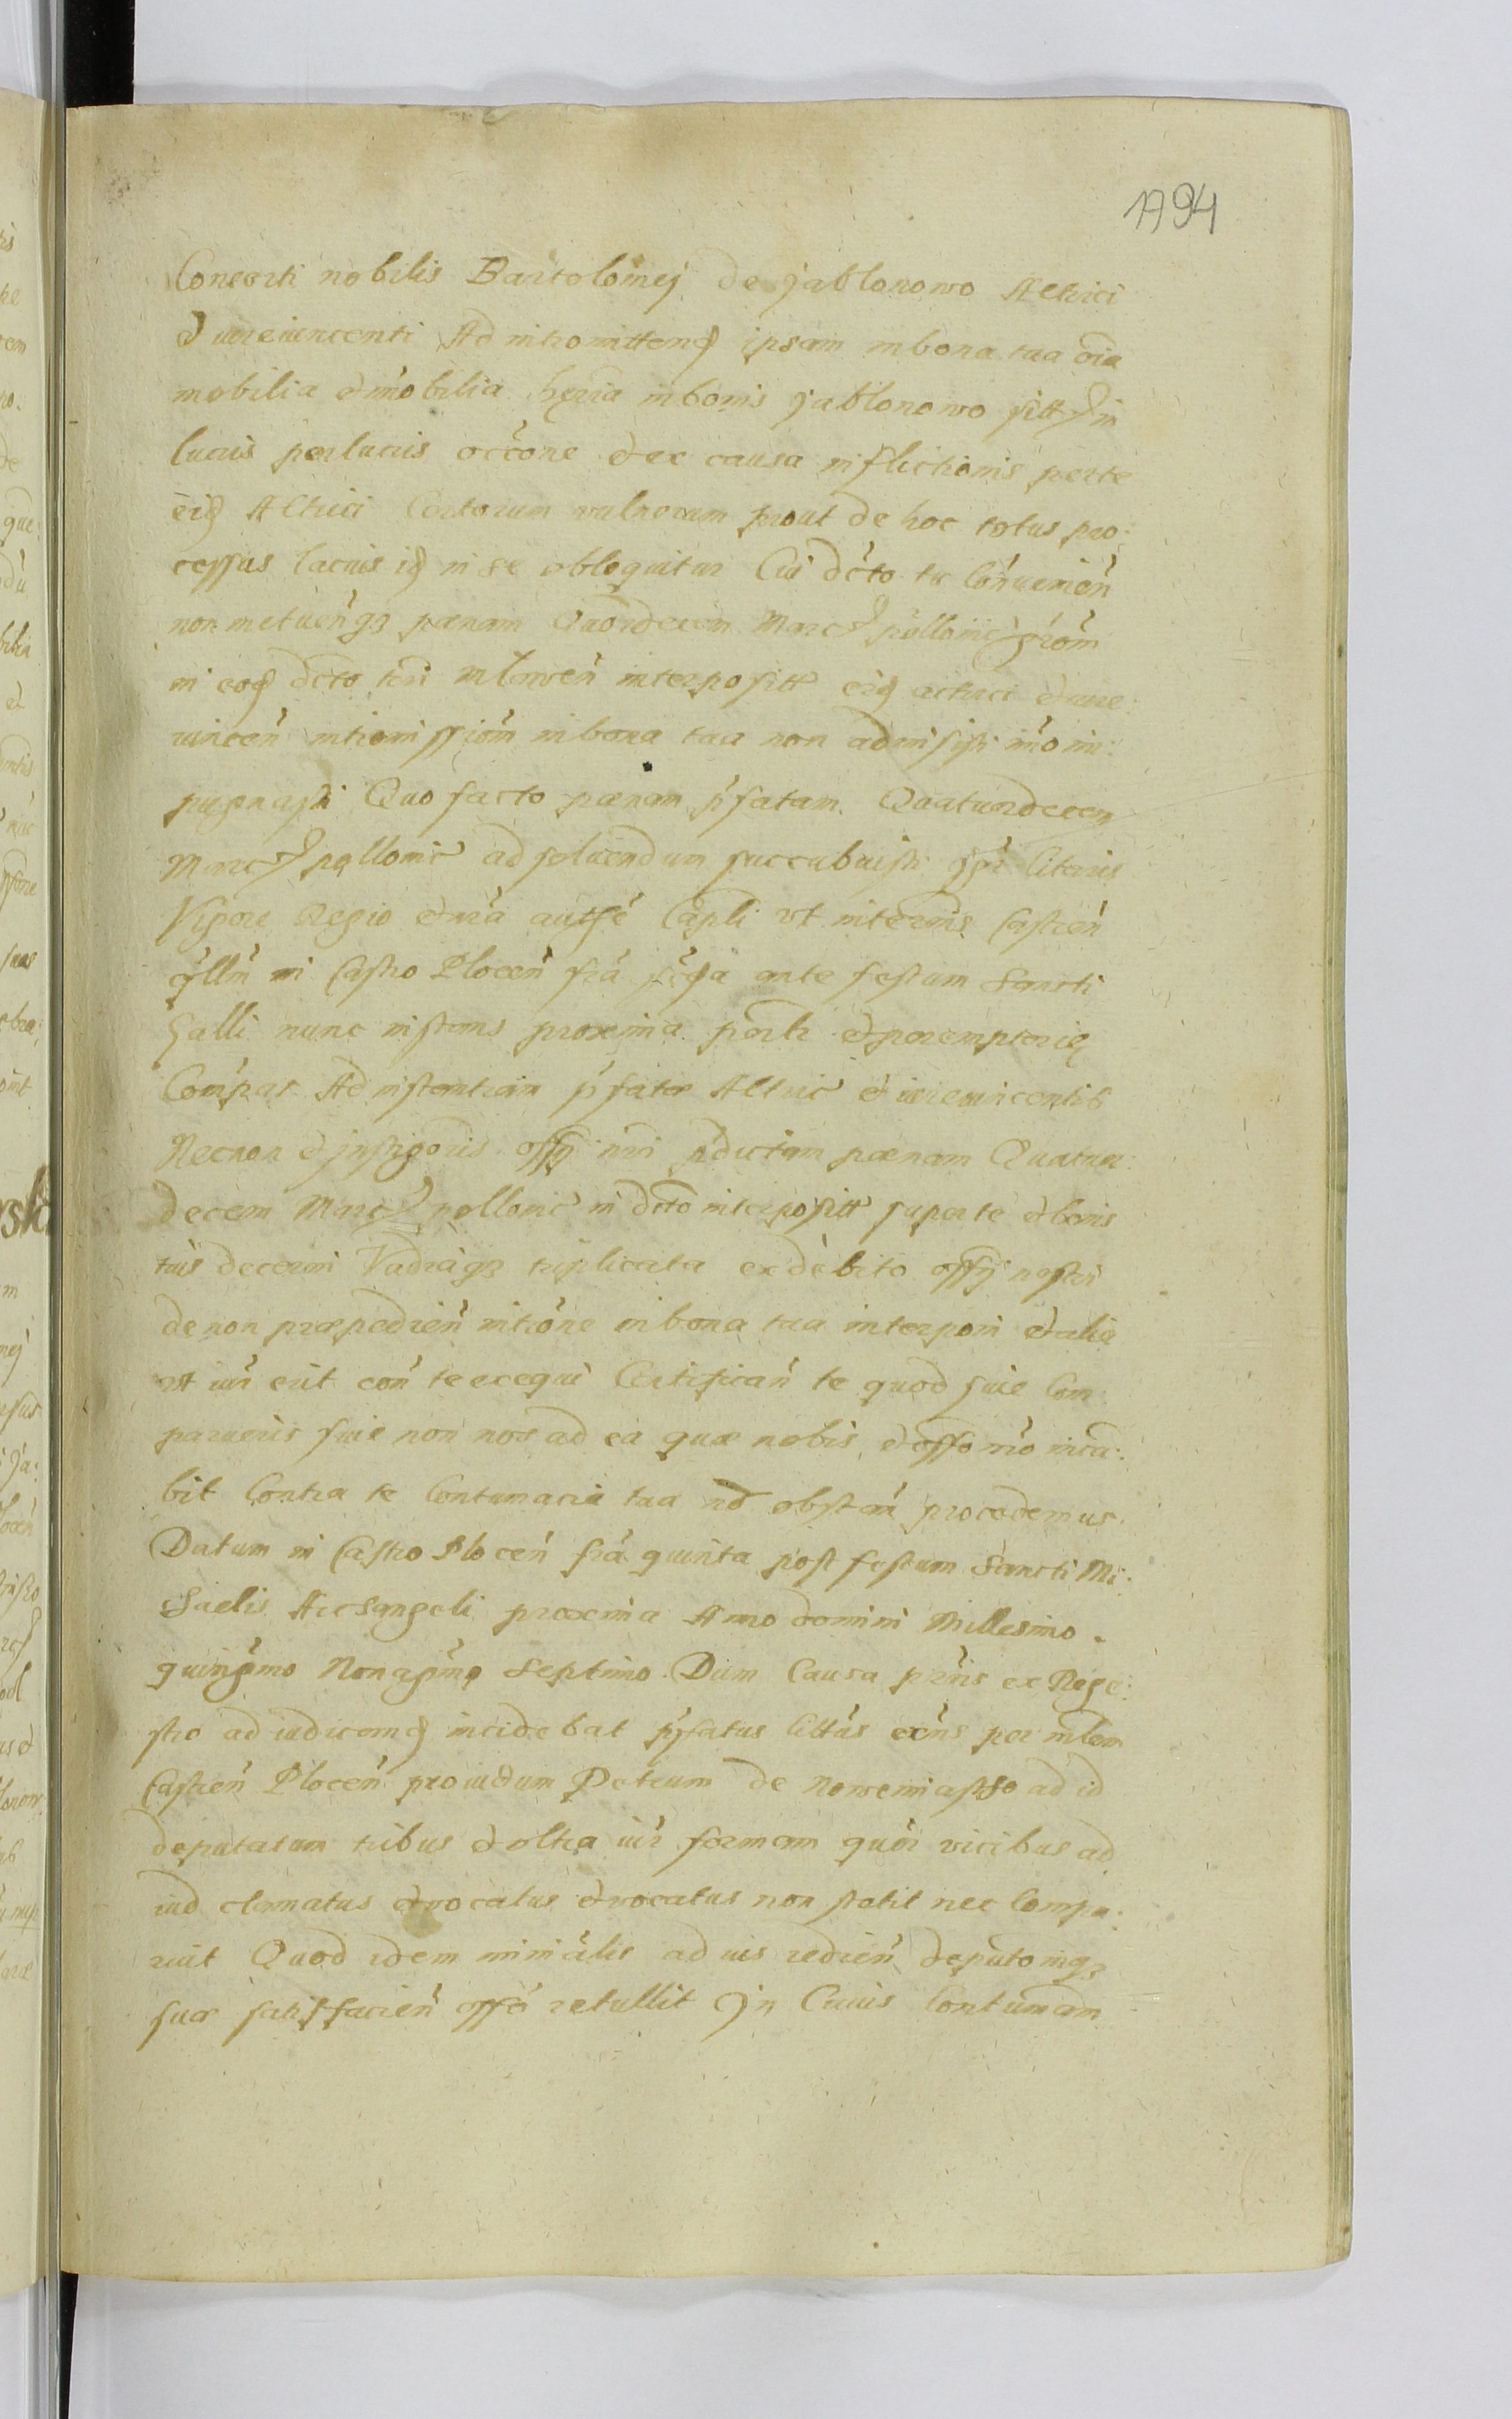 1794
Consorti nobilis Bartolomej de Jablonowo Actrici
et iure vincenti Ad intromitten ipsam in bona tua oia
mobilia et imobilia hęria in bonis Jablonowo sitt in
lucris perlucris occone et ex causa inflictionis per te
eid Actrici Certorum vulnerum prout de hoc totus pro:
cessus lacius id in se obloquitur Cui dcto tu Contravenien
non metuengz pœnam Quordecem Marc pollonic
in eod dcto tri interpositt eid actrici et iure
vincen intromissiom in bona tua non admisisti imo im:
pugnasti Quo facto pœnam pfatam Quatuordecem
Marc pollonic ad solvendum succubuisti literis
Vigore Regio et nra autte Capli vt in terminis Castren
qlln in Castro Plocen fra ante festum Sancti
Galli nunc instans proxima perlr et peremptorie
Compas Ad instantiam pfatæ Actric et iure vincentis
Necnon et Instigoris offij nri pdictam pœnam Quatuor:
decem Marc pollonic in dcto interpositt super te et bonis
tuis decerni Vadiagz triplicata ex debito offij nostri
de non præpedien introne in bona tua interponi et alia
vt iur erit con te exequi Certifican te quod sive Com
parueris sive non nos ad ea quæ nobis et offo nro incu:
bit Contra te Contumacia tua no obstan procedemus
Datum in Castro Plocen fra quinta post festum Sancti Mi:
chaelis Archangeli proxima Anno domini Millesimo
quingmo Nonagmo Septimo. Dum Causa pris ex Rege:
stro ad iudicand incidebat pfatus cittus exns per mlem
Castren Plocen providum Petrum de Nowemiastho ad id
deputatum tribus et oltra iur formam quor vicibus ad
iud clamatus et vocatus et vocatus non stetit nec Compa:
ruit Quod idem minialis ad nis redien deputoniqz
suæ satisfacien offo retullit In Cuius Contumam